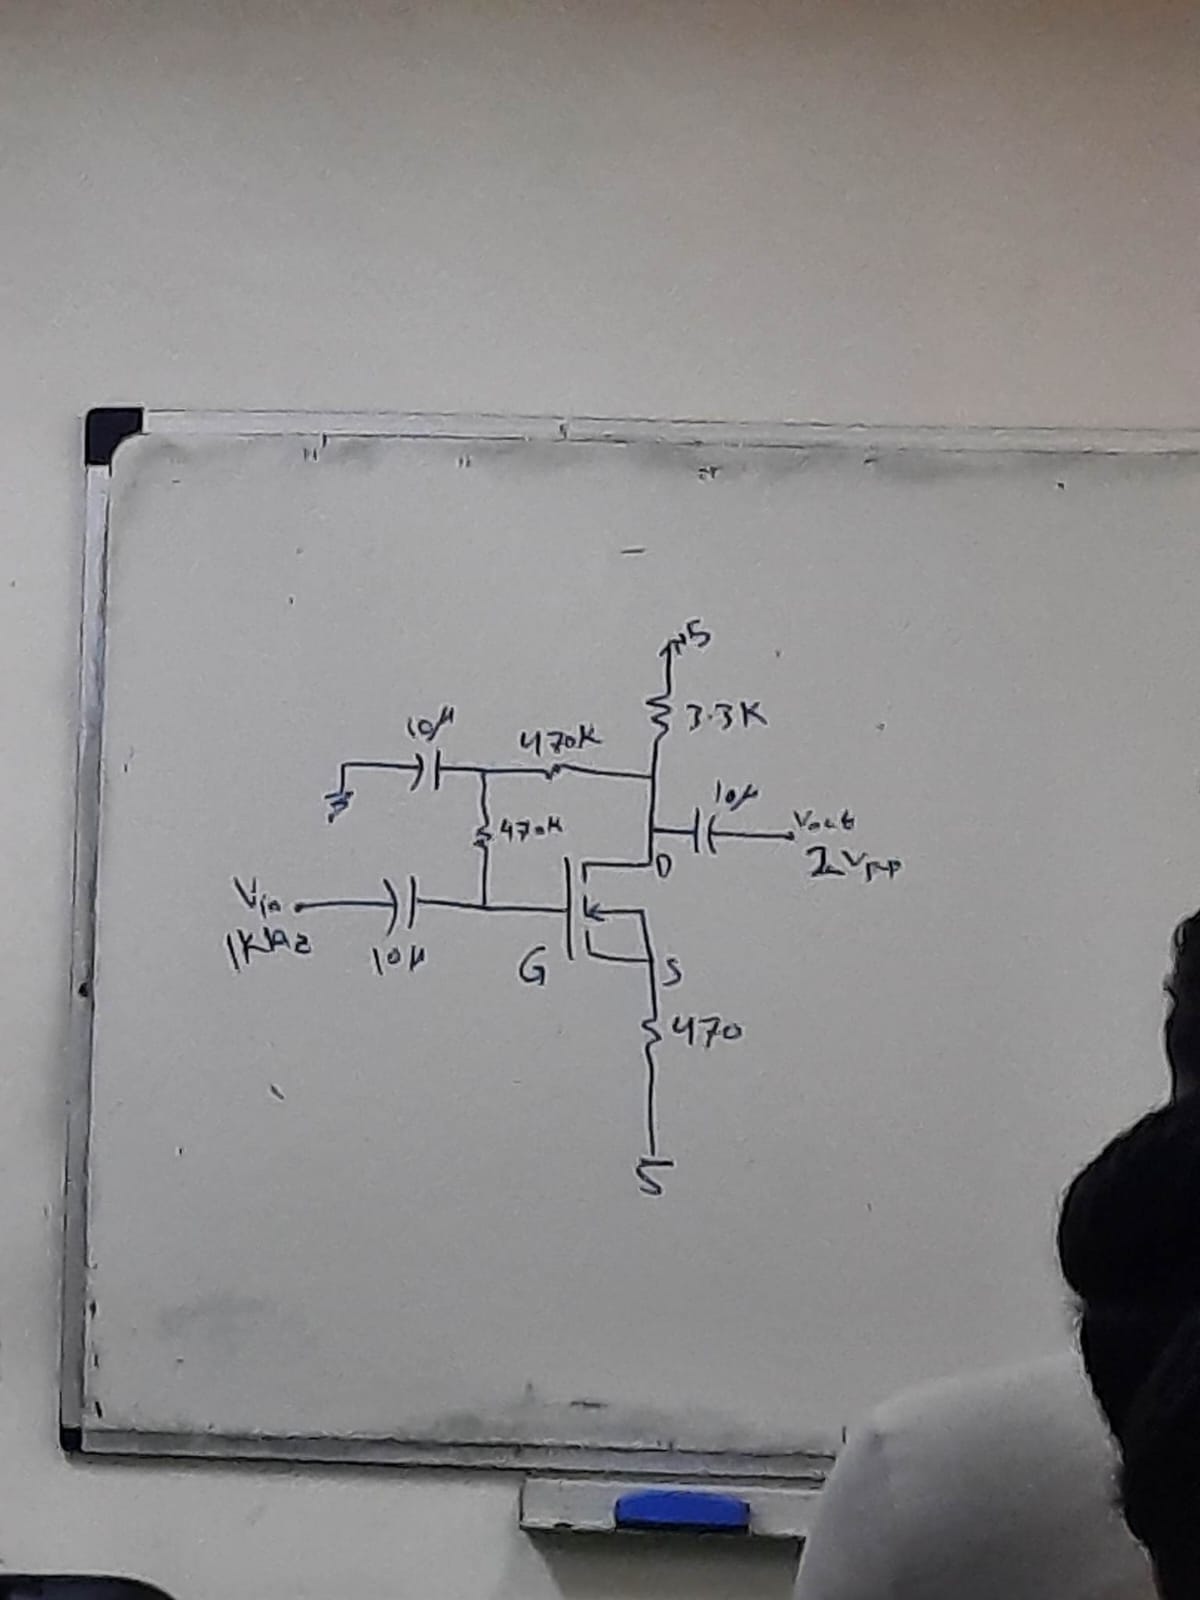 3.3K
10µ
470K
10µ
470K
Vout
2Vpp
D
Vin
1KHz
10µ
G
S
470